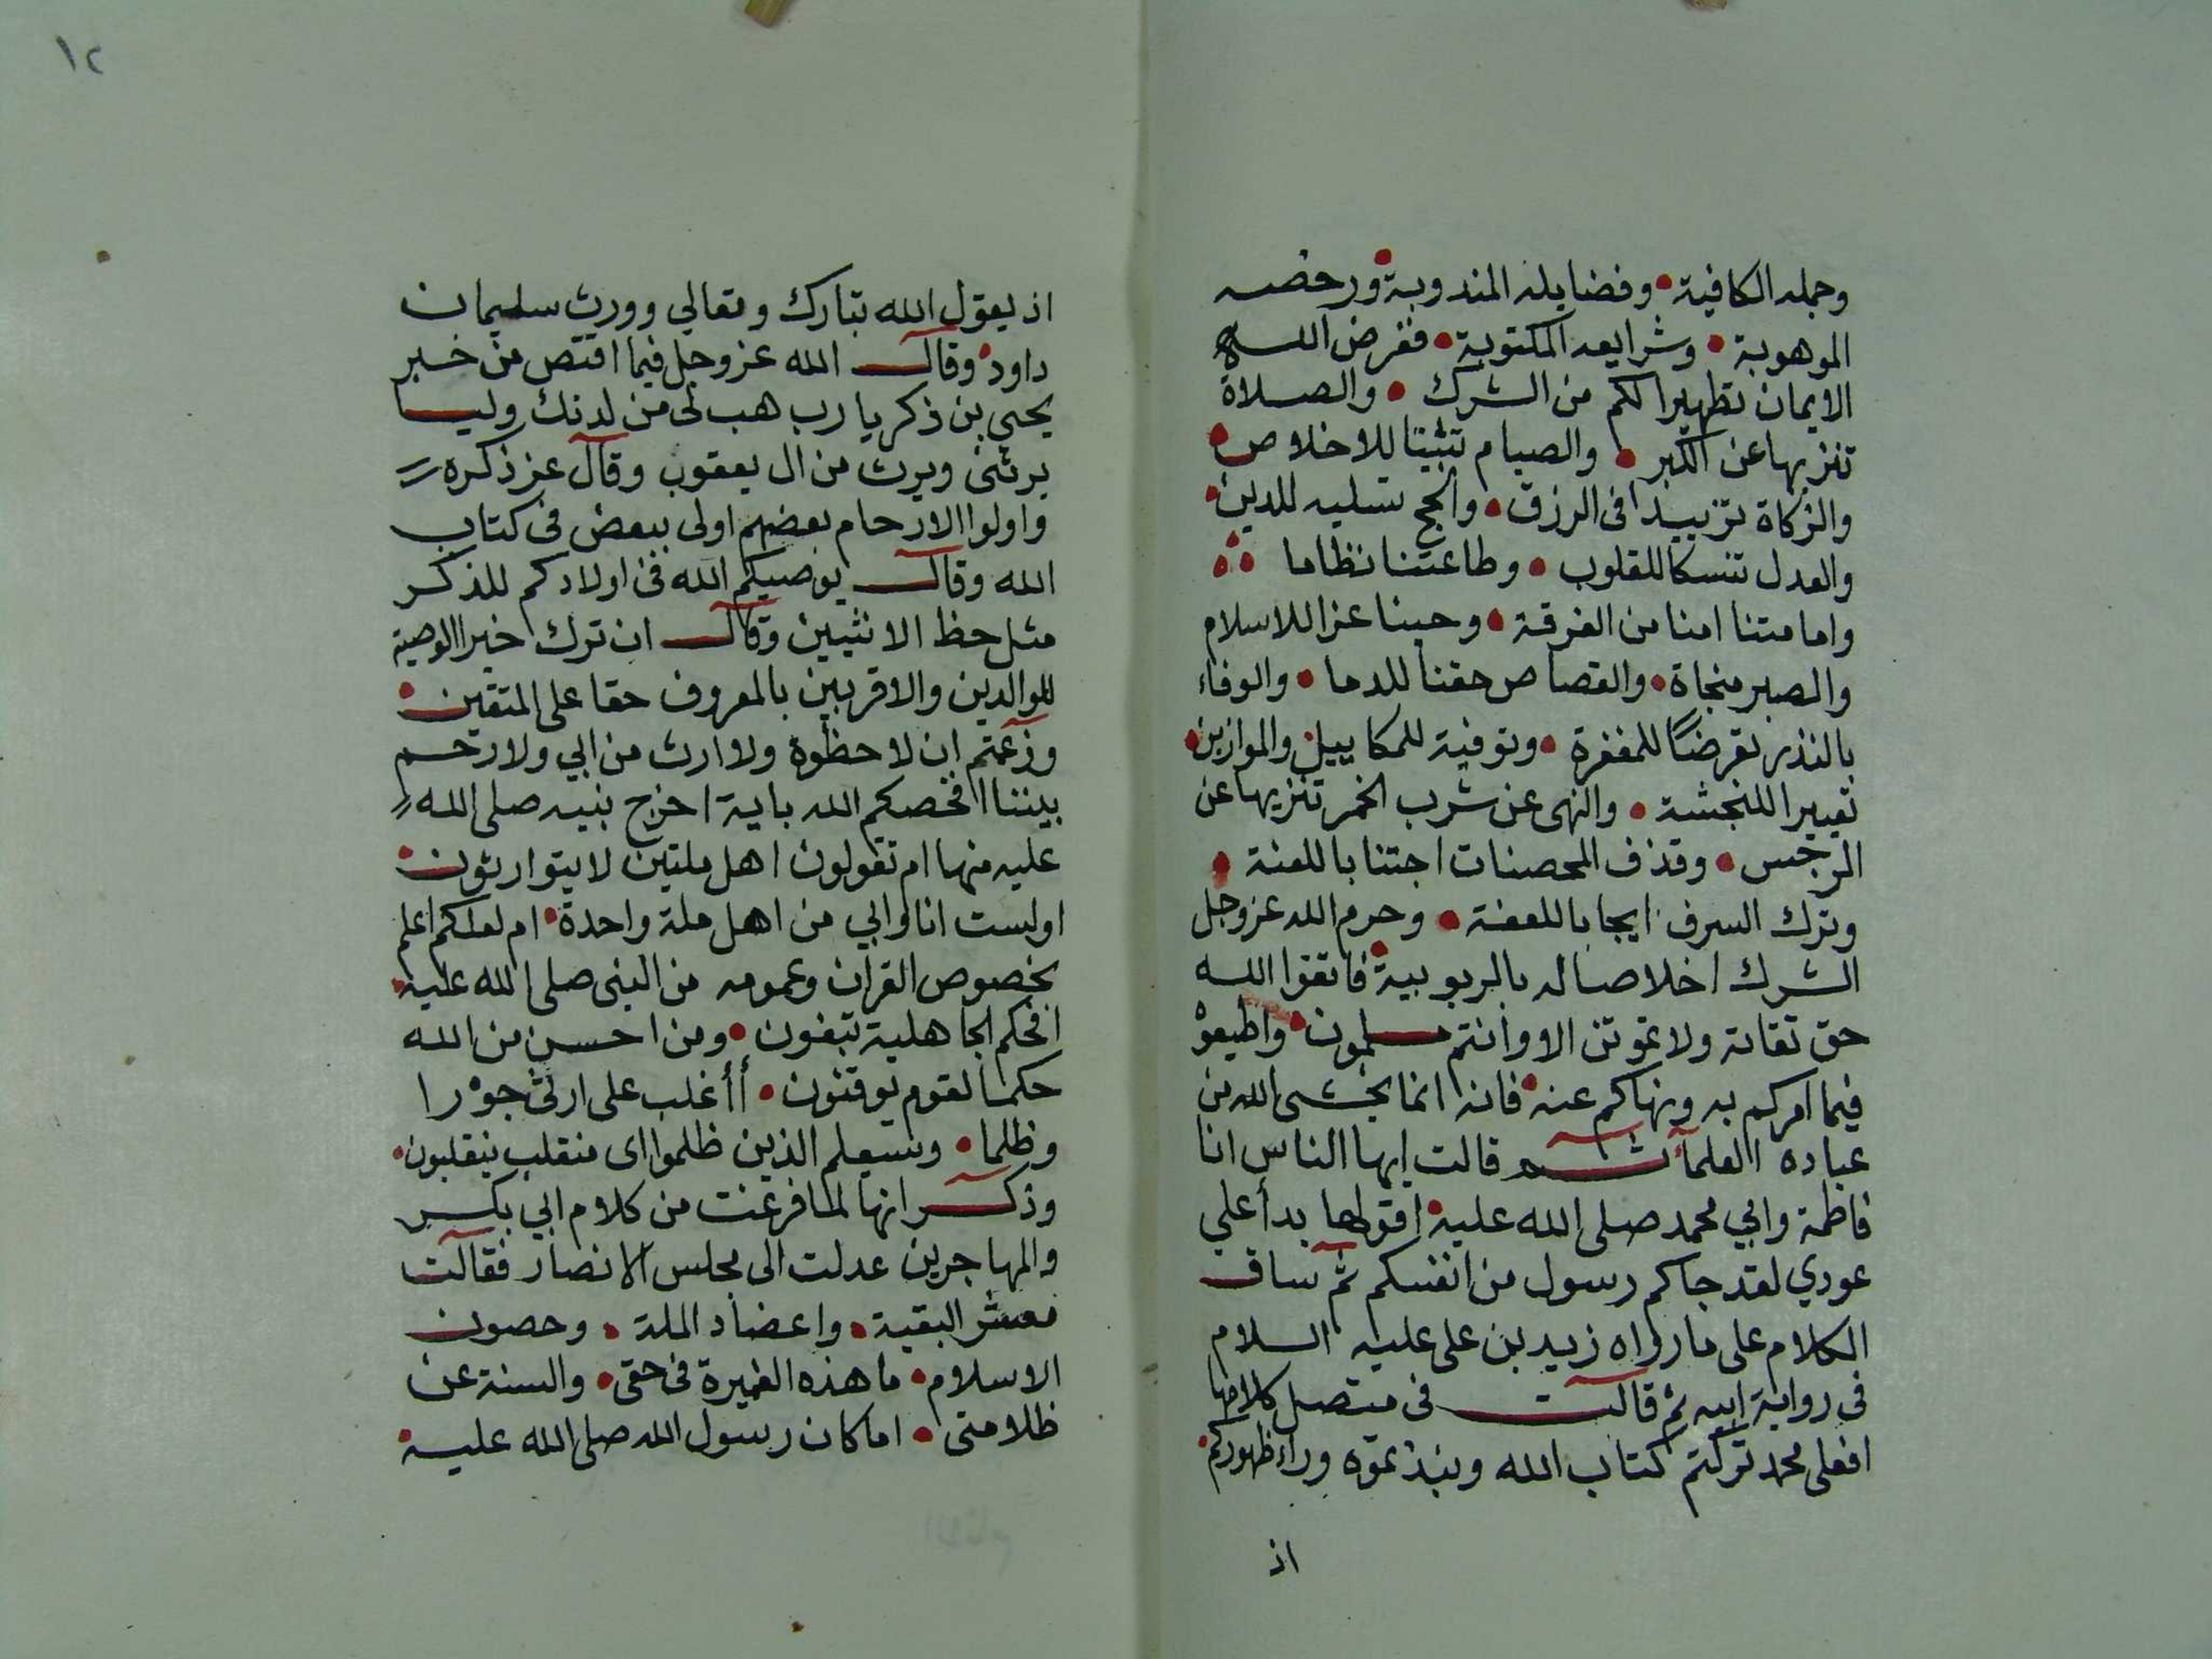 وجمله الكافية • وفضايله المندوبة • ورخصه
الموهوبة • وشرايعه المكتوبة • ففرض الله
الايمان تطهيرا لكم من الشرك • والصلاة
تنزيها عن الكبر • والصيام تثبيتا للاخلاص •
والزكاة تزييدا في الرزق • والحج تسليه للدين •
والعدل تنسكا للقلوب • وطاعتنا نظاما
وامامتنا امنا من الفرقة • وحبنا عزا للاسلام
والصبر منجاة • والقصاص حقنا للدما • والوفاء
بالنذر تعرضا للمغفرة • وتوفية للمكاييل والموازين •
تعييرا للنجشة • والنهى عن شرب الخمر تنزيها عن
الرجس • وقذف المحصنات اجتنابا للعنة •
وترك السرف ايجابا للعفة • وحرم الله عز وجل
الشرك اخلاصا له بالربوبية • فاتقوا الله
حق تقاته ولا تموتن الا وانتم مسلمون • واطيعوه
فيما امركم به ونهاكم عنه • فانه انما يخشى الله من
عباده العلمآء ثم قالت ايها الناس انا
فاطمة وابي محمد صلى الله عليه • اقولها بدأ على
عودي لقد جاكم رسول من انفسكم ثم ساق
الكلام على ما رواه زيد بن على عليه السلام
في رواية ابيه ثم قالت في متصل كلامها
افعلى محمد تركتم كتاب الله ونبذتموه وراء ظهوركم •
اذ
١٢
اذ يقول الله تبارك وتعالي وورث سليمان
داود • وقال الله عز وجل فيما اقتص من خبر
يحيي بن ذكريا رب هب لى من لدنك وليا
يرثنى ويرث من ال يعقوب وقال عز ذكره
واولوا الارحام بعضهم اولى ببعض في كتاب
الله وقال يوصيكم الله في اولادكم للذكر
مثل حظ الانثيين وقال ان ترك خيرا الوصية
للوالدين والاقربين بالمعروف حقا على المتقين •
وزعمتم ان لا حظوة ولا ارث من ابي ولا رحم
بيننا افخصكم الله باية اخرج نبيه صلى الله
عليه منها ام تقولون اهل ملتين لا يتوارثون •
اولست انا وابي من اهل ملة واحدة • ام لعلكم اعلم
بخصوص القران وعمومه من النبى صلى الله عليه •
افحكم الجاهلية تبغون • ومن احسن من الله
حكما لقوم يوقنون • أأغلب على ارثى جورا
وظلما • وسيعلم الذين ظلموا اى منقلب ينقلبون •
وذكر انها لما فرغت من كلام ابي بكر
والمهاجرين عدلت الى مجلس الانصار فقالت
معشر البقية • واعضاد الملة • وحصون
الاسلام • ما هذه الغميرة في حقى • والسنة عن
ظلامتى • اما كان رسول الله صلى الله عليه •